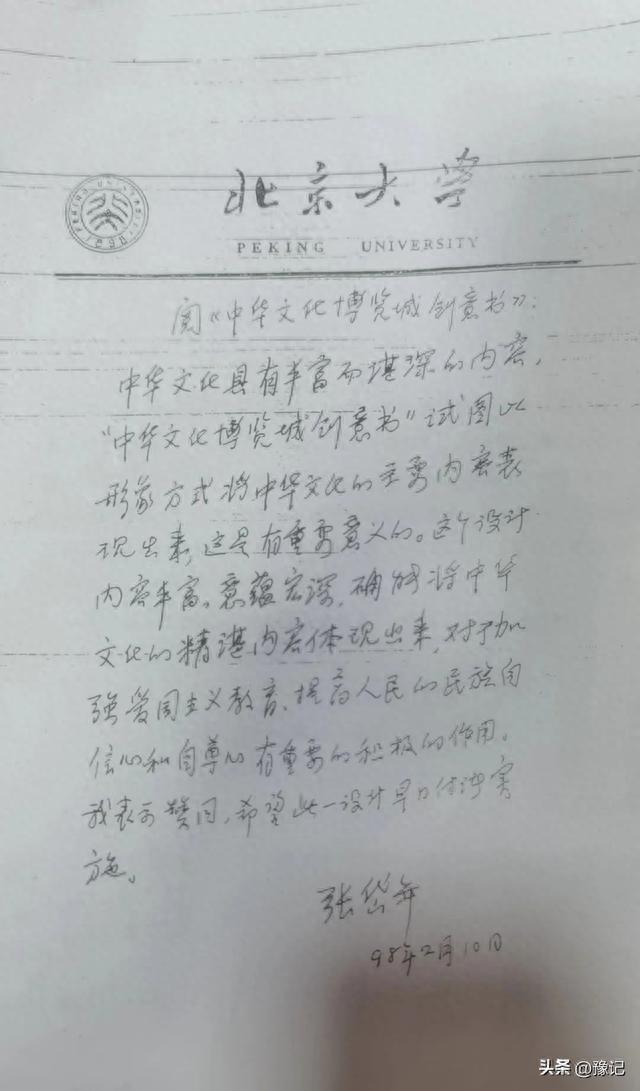 北京大学
PEKING UNIVERSITY
阅《中华文化博览城创意书》:
中华文化具有丰富而堪深的内容,
“中华文化博览城创意书”试图以
形象方式将中华文化的主要内容表
现出来,这是有重要意义的。这个设计
内容丰富、意蕴宏深,确能将中华
文化的精湛内容体现出来,对于加
强爱国主义教育、提高人民的民族自
信心和自尊心有重要的积极的作用。
我表示赞同,希望此一设计早日付诸实
施。
张岱年
98年2月10日
头条 @豫记